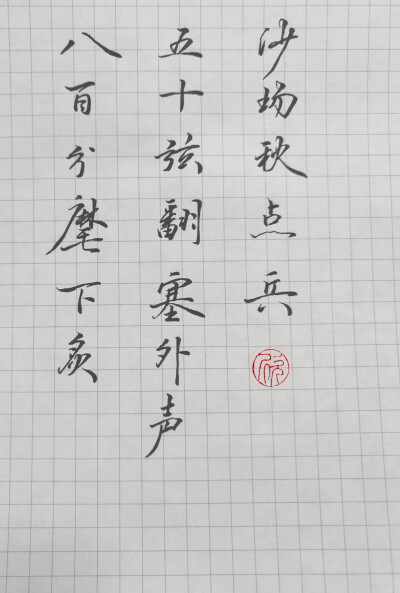 八百分麾下炙
五十弦翻塞外声
沙场秋点兵